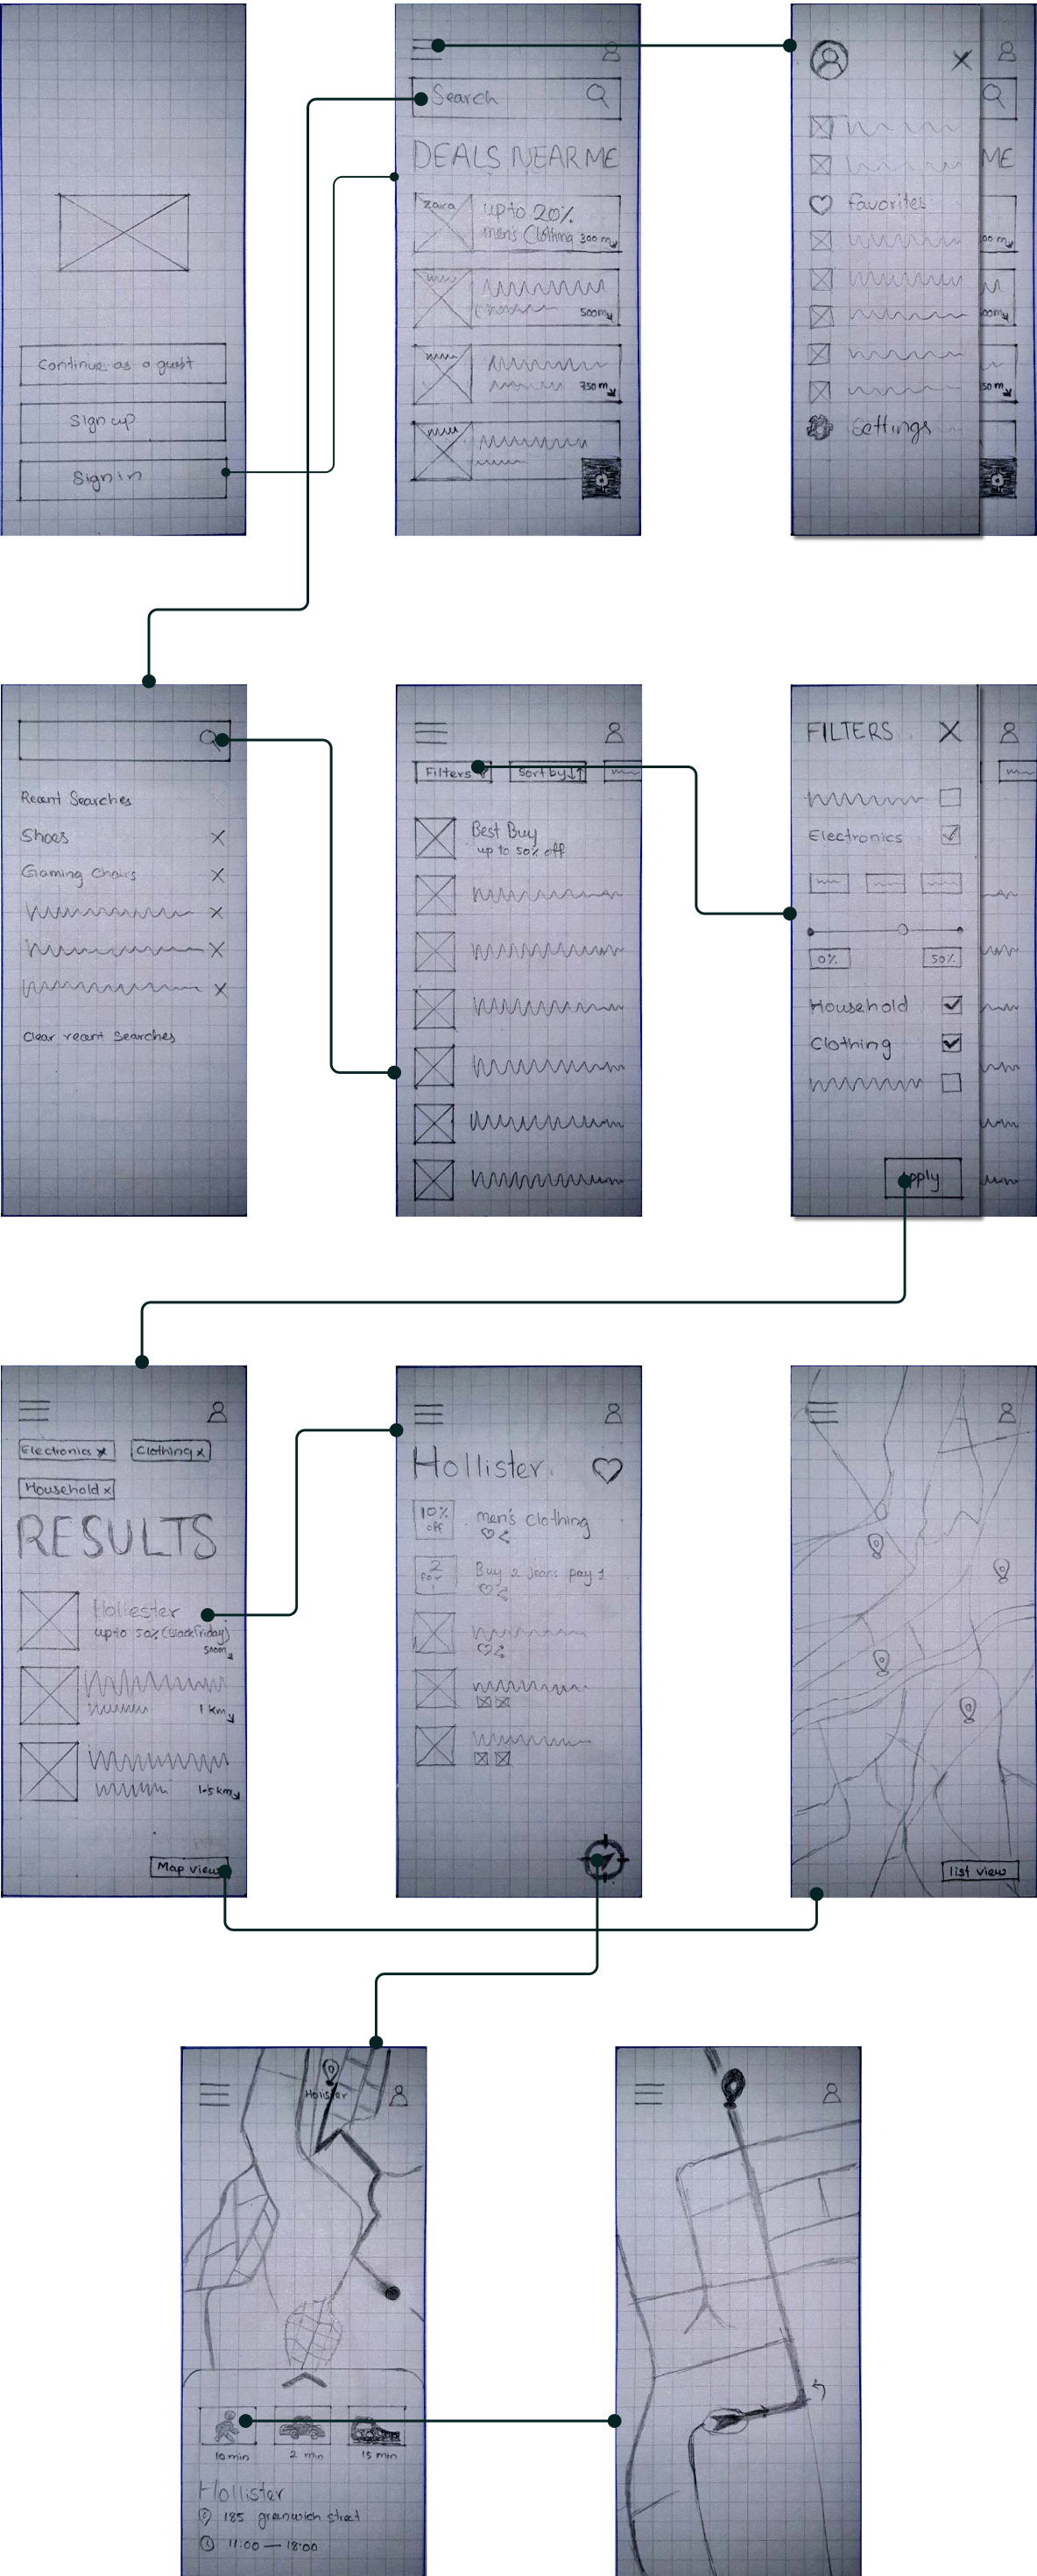 Continue as a guest
Sign up
Sign in
Search
DEALS NEAR ME
zara
up to 20%
men's Clothing 300 m
500m
750 m
ME
00 m
00m
50 m
Favorites
Settings
Recent Searches
Shoes
Gaming Chairs
Clear recent Searches
Filters
Sort by
Best Buy
up to 50% off
FILTERS
Electronics
0%
50%
Household
Clothing
Apply
Electronics x
Clothing x
Household x
RESULTS
Hollester
up to 50% (black friday)
500m
1 km
1.5 km
Map view
Hollister
10%
off
men's clothing
2
For
1
Buy 2 jeans pay 1
list view
Holister
10 min
2 min
15 min
Hollister
185 greenwich street
11:00 — 18:00